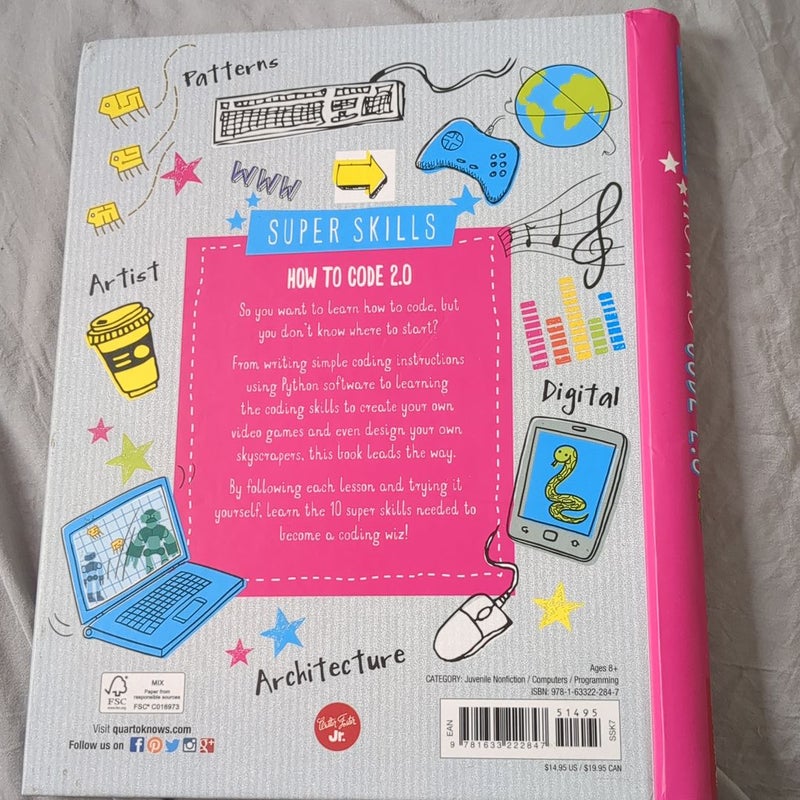 Patterns
WWW
SUPER SKILLS
HOW TO CODE 2.0
Artist
So you want to learn how to code, but
you don't know where to start?
From writing simple coding instructions
using Python software to learning
the coding skills to create your own
video games and even design your own
skyscrapers, this book leads the way.
By following each lesson and trying it
yourself, learn the 10 super skills needed to
become a coding wiz!
Digital
Architecture
Ages 8+
CATEGORY: Juvenile Nonfiction / Computers / Programming
ISBN: 978-1-63322-284-7
FSC
www.fsc.org
MIX
Paper from
responsible sources
FSC® C016973
Visit quartoknows.com
Follow us on
Walter Foster
Jr.
EAN
9 781633 222847
51495
SSK7
$14.95 US / $19.95 CAN
HOW TO CODE 2.0